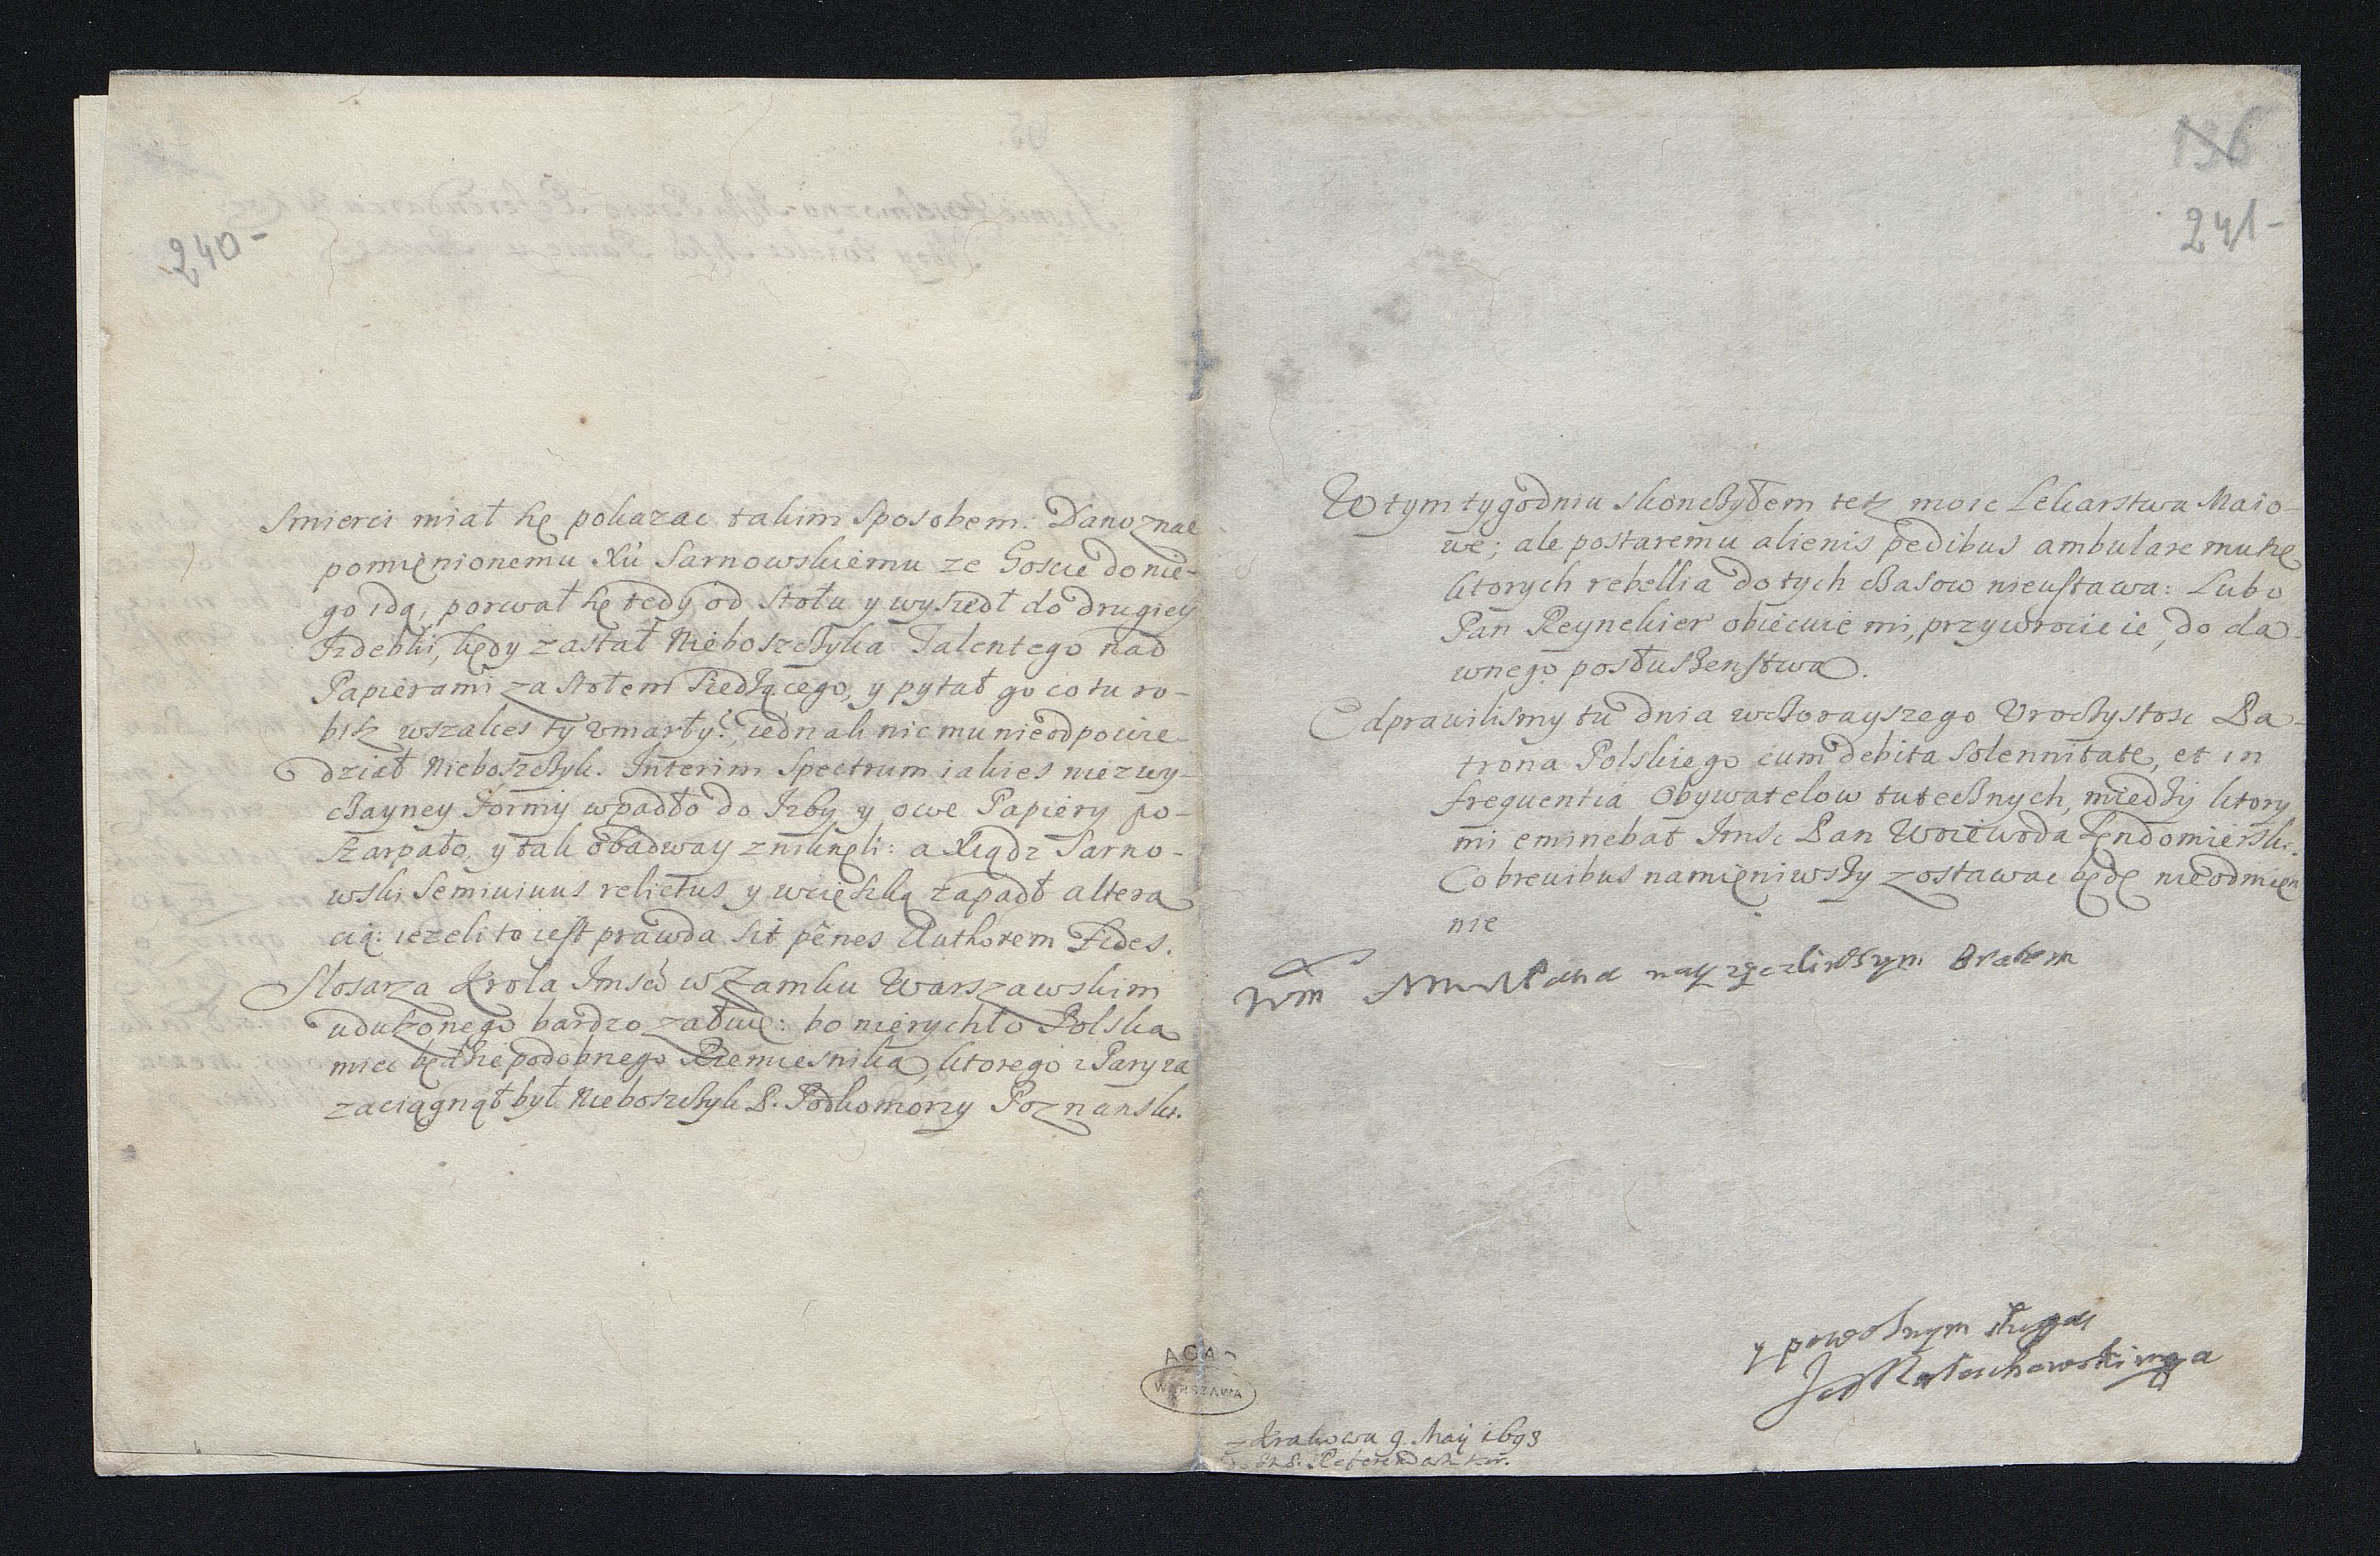 240-
Smierci miał się pokazac takim sposobem. Dano znac
pomięnionemu Xu Sarnowskiemu ze Goscie do nie-
go idą, porwał się tedy od stołu y wyszedł do drugiey
Izdebki, kędy zastał Nieboszczyka Talentego nad
Papierami za stołem siedzącego, y pytał go co tu ro-
bisz wszakes ty umarły? iednak nic mu nieodpowie-
dział Nieboszczyk. Interim Spectrum iakies niezwy-
czayney formy wpadło do Izby y owe Papiery po-
szarpało, y tak obadway znikneli: a Xiądz Sarno-
wski semiuiuus relictus y w cięszką zapadł altera
cią: iezeli to iest prawda sit penes Authorem Fides.
Slosarza Krola Imsci w Zamku Warszawskim
uduszonego bardzo załuię: bo nierychło Polska
miec będzie podobnego Rzemiesnika, ktorego z Paryza
zaciągnął był Nieboszczyk P. Podkomorzy Poznanski.
AGAD
WARSZAWA
136
241-
W tym tygodniu skonczyłem tesz moie Lekarstwa Maio-
we; ale postaremu alienis pedibus ambulare muszę
ktorych rebellia do tych czasow nieustawa: Lubo
Pan Reynekier obiecuie mi, przywrocic ie, do da-
wnego posłuszenstwa.
Odprawilismy tu dnia wczorayszego Uroczystosc Pa-
trona Polskiego cum debita solennitate, et in
frequentia Obywatelow tutecznych, miedzy ktory
mi eminebat Imsc Pan Woiewoda Sendomierski.
Co breuibus namięniwszy zostawac będę nieodmięn
nie
Wm Pana nayzyczliwszym Bratem
y powolnym sługą
Jan Małachowski
z Krakowa 9. Maij 1693
P. Referendarz kor.